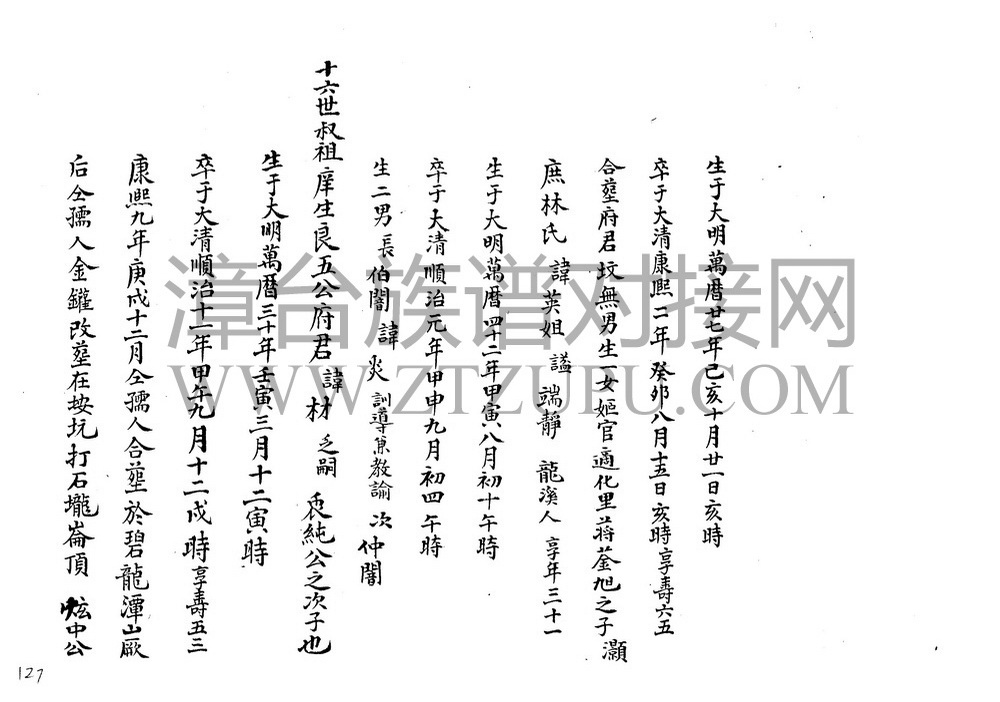 生于大明萬曆廿七年己亥十月廿一日亥時
卒于大清康熙二年癸卯八月十五日亥時享壽六五
合塟府君坟無男生一女嫗官適化里蔣荃旭之子灝
庶林氏 諱英姐 謚端靜 龍溪人 享年三十一
生于大明萬曆四十二年甲寅八月初十午時
卒于大清順治元年甲申九月初四午時
生二男長伯闇諱炎訓導兼教諭次仲闇
十六世叔祖庠生良五公府君諱材乏嗣 純公之次子也
生于大明萬曆三十年壬寅三月十二寅時
卒于大清順治十一年甲午九月十二戌時享壽五三
康熙九年庚戌十二月仝孺人合塟於碧龍潭山厰
后仝孺人金罐改塟在垵坑打石壠崙頂 炫中公
127
漳台族谱对接网
WWW.ZTZUPU.COM